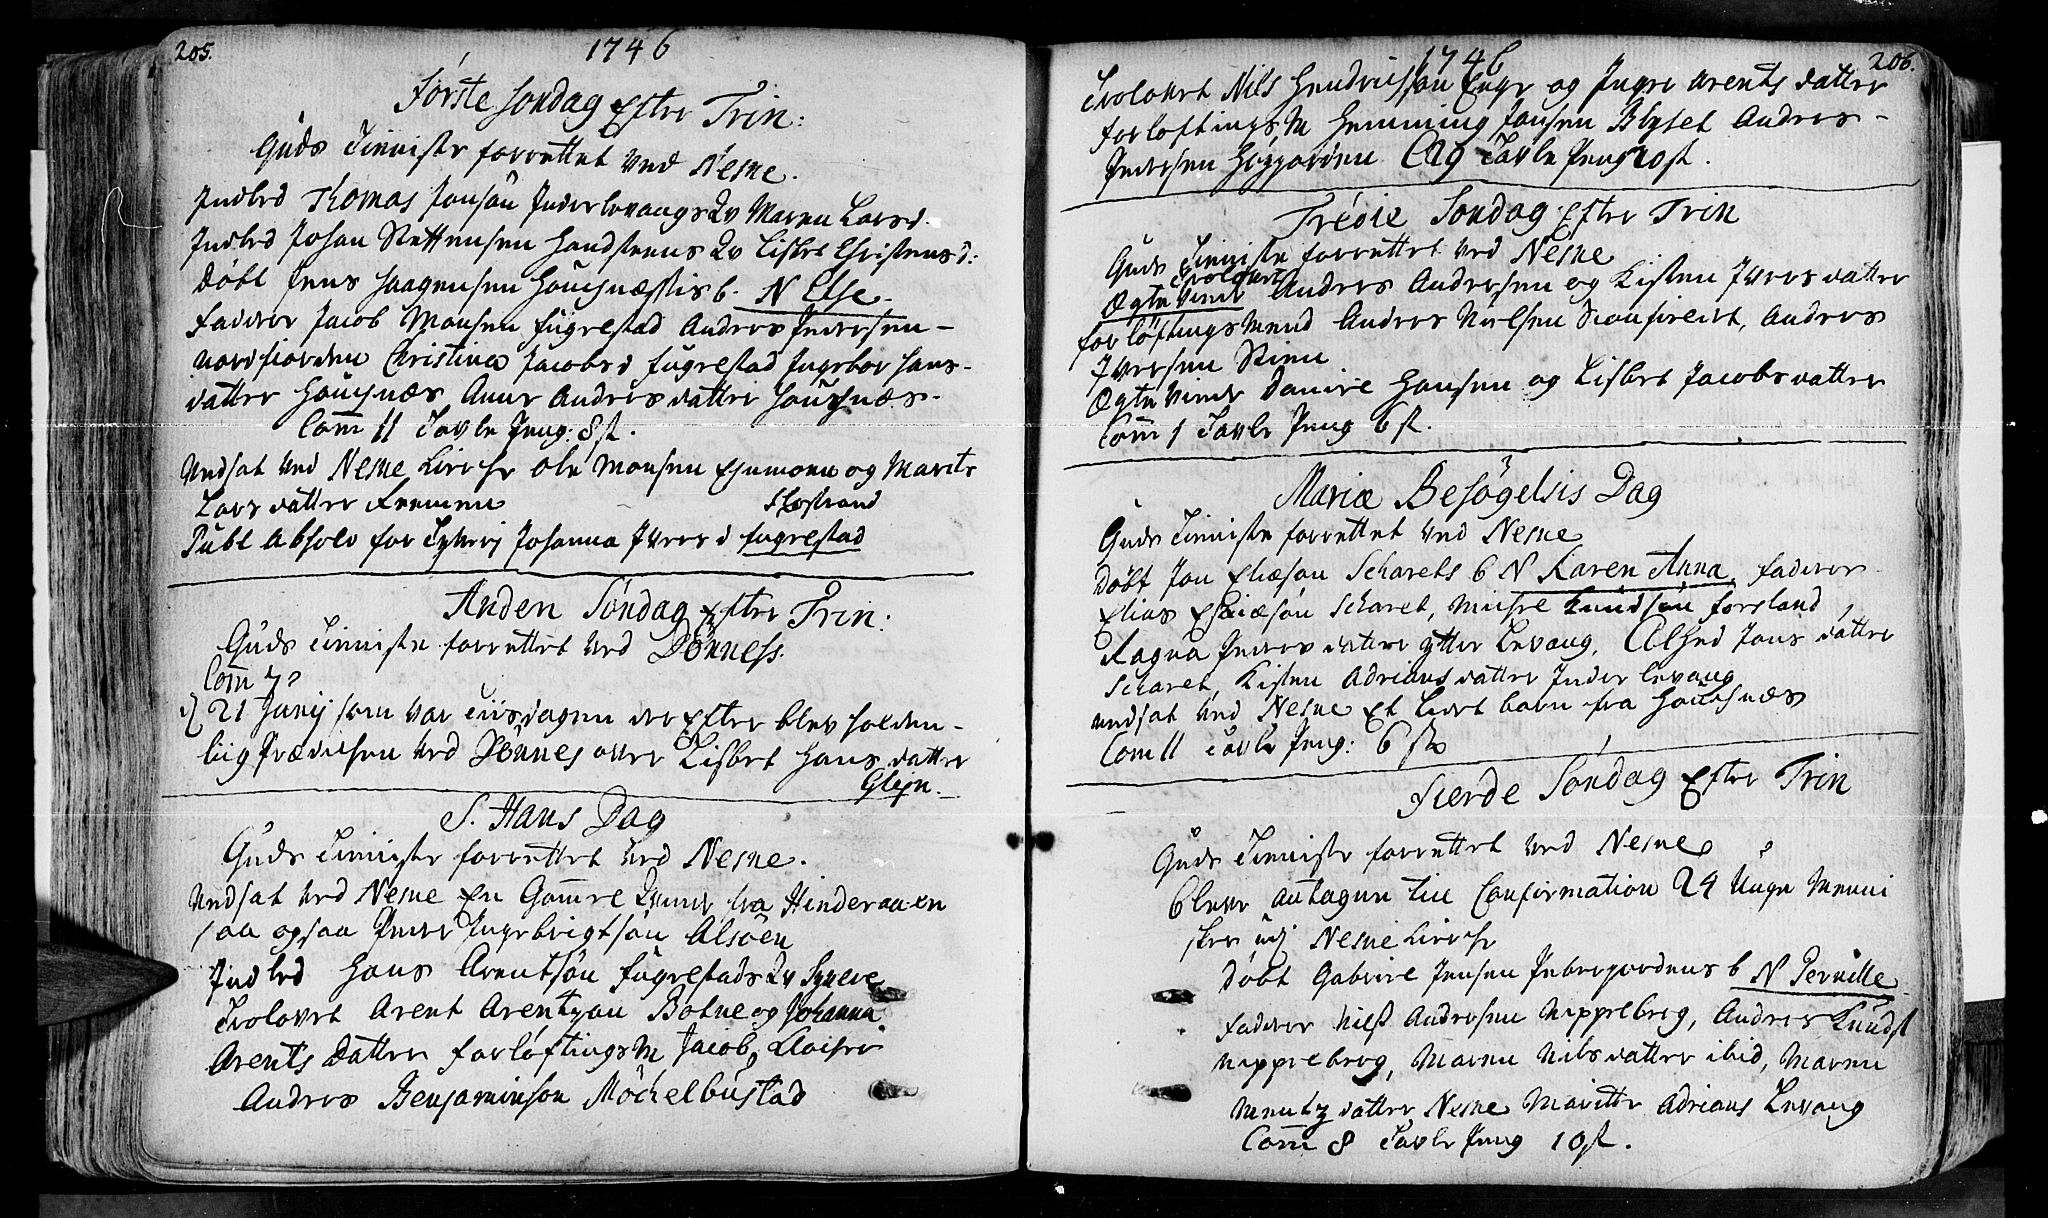 205.
1746
Første Søndag Efter Trin:
Guds Tienniste forrettet ved Nesne.
Indled Thomas Jonsøn Inderlevangs Qv Maren Larsd.
Indled Johan Steffensen Handstenens Qv Lisbet Christensd:
Døbt Jens Haagensen Hougnæssis b. N Else.
Faderer Jacob Monsen Fugrestad Anders Pedersen-
Nordfiorden Christina Jacobsd Fugrestad Ingebor Hans-
datter Hougnæs Anne Andersdatter Hougnæs.
Com 11 Tavle Peng: 8 st.
Undsat ved Nesne Kirche Ole Monsen og Marite
Larsdatter
Slostrand
Publ Absolv for Johanna Iversd Fugrestad
Anden Søndag Efter Trin:
Guds Tienniste forrettet ved Dönness.
Com 70
d 21 Junij som var Tiisdagen der Efter blev holden-
liig Prædichen ved Dönnes over Lisbet Hansdatter
Glejn.
S. Hans Dag
Guds Tienniste forrettet ved Nesne.
Undsat ved Nesne En Gammel Qvinde fra Hinderaaen
saa ogsaa Peder Ingebrigtsøn Alsöen
Indled Hans Arentsøn Fugrestads Qv Syneve
Trolovet Arent Arentzøn Botne og Johanna
Arents Datter forløftings M Jacob
Anders Benjaminson Möckelbustad
1746
206.
Trolovet Nils Hendrichsøn Enge og Ingre Arents datter
forløftings M Hemming Jonsen Anders-
Pedersen Tavle Peng 20 st.
Tredie Søndag Efter Trin
Guds Tienniste forrettet ved Nesne
Trolovet
Ægte Viede Anders Andersen og Kisten Ivers datter
forløftings Mend Anders Nielsen Anders
Iversen
Ægte Viede Daniel Hansen og Lisbet Jacobsdatter
Com 1 Tavle Peng 6 st.
Mariæ Besøgelsis Dag
Guds Tienniste forrettet ved Nesne
Døbt Jon Eliæsøn Scharets b N Karen Anna, faderer
Elias Eliæsøn Scharet, Knudsøn Forsland
Ragna Peders datter Ytter Levang, Jons datter
Scharet, Kisten Adriansdatter Inder Levang
Undsat ved Nesne Et Lidet barn fra Hougsnæs
Com 11 Tavle Peng: 6 st
Fierde Søndag Efter Trin
Guds Tienniste forrettet ved Nesne
bleve antagen till Confirmation 24 Unge Menni
sker udj Nesne Kirche
Døbt Gabriel Jensen b N Pernille
Faderer Nils Andersen Nippelberg, Anders Knuds
Nippelberg, Maren Nilsdatter ibid, Maren
Mentzdatter Nesne Maritte Adrians Levang
Com 8 Tavle Peng 10 st.